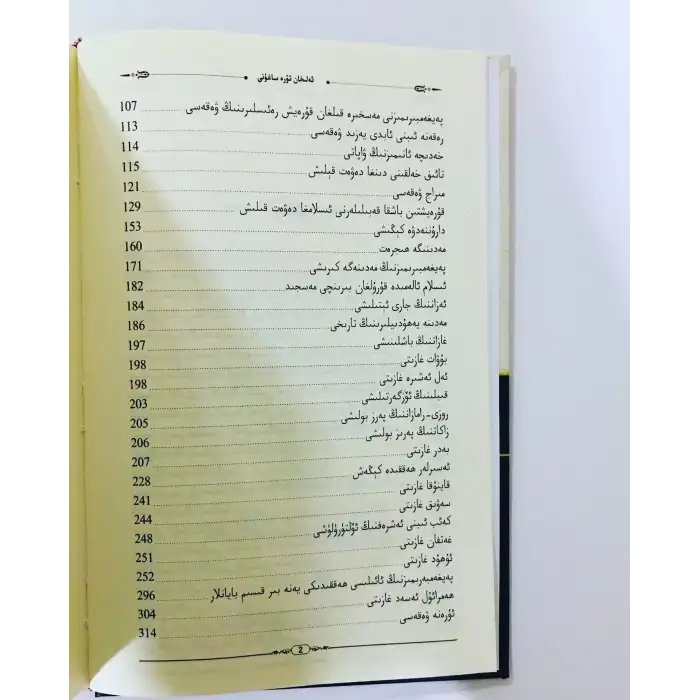 ئەلىخان تۆرە ساغۇنى
پەيغەمبىرىمىزنى مەسخىرە قىلغان قۇرەيش رەئىسلىرىنىڭ ۋەقەسى 107
رەقەتە ئىبنى ئابدى يەزىد ۋەقەسى 113
خەدىچە ئانىمىزنىڭ ۋاپاتى 114
تائىق خەلقىنى دىنغا دەۋەت قىلىش 115
مىراج ۋەقەسى 121
قۇرەيشتىن باشقا قەبىلىلەرنى ئىسلامغا دەۋەت قىلىش 129
دارۇننەدۋە كېڭىشى 153
مەدىنىگە ھىجرەت 160
پەيغەمبىرىمىزنىڭ مەدىنەگە كىرىشى 171
ئىسلام ئالەمىدە قۇرۇلغان بىرىنچى مەسجىد 182
ئەزاننىڭ جارى ئېتىلىشى 184
مەدىنە يەھۇدىيلىرىنىڭ تارىخى 186
غازاتنىڭ باشلىنىشى 197
بۇۋات غازىتى 198
ئەل ئەشىرە غازىتى 198
قىبلىنىڭ ئۆزگەرتىلىشى 203
روزى-رامازاننىڭ پەرز بولىشى 205
زاكاتنىڭ پەرىز بولىشى 206
بەدر غازىتى 207
ئەسىرلەر ھەققىدە كېڭەش 228
قاينۇقا غازىتى 241
سەۋىق غازىتى 244
كەئب ئىبنى ئەشرەفنىڭ ئۆلتۈرۈلۈشى 248
غەتفان غازىتى 251
ئۇھۇد غازىتى 252
پەيغەمبەرىمىزنىڭ ئائىلىسى ھەققىدىكى يەنە بىر قىسىم بايانلار 296
ھەمرائۇل ئەسەد غازىتى 304
ئۇرەنە ۋەقەسى 314
2